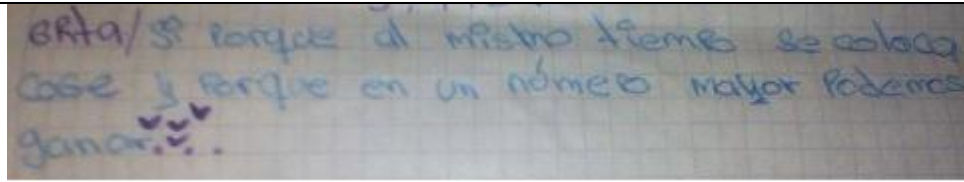 GRta/ Si Porque al mismo tiempo se coloca
case y Porque en un número mayor Podemos
ganar...